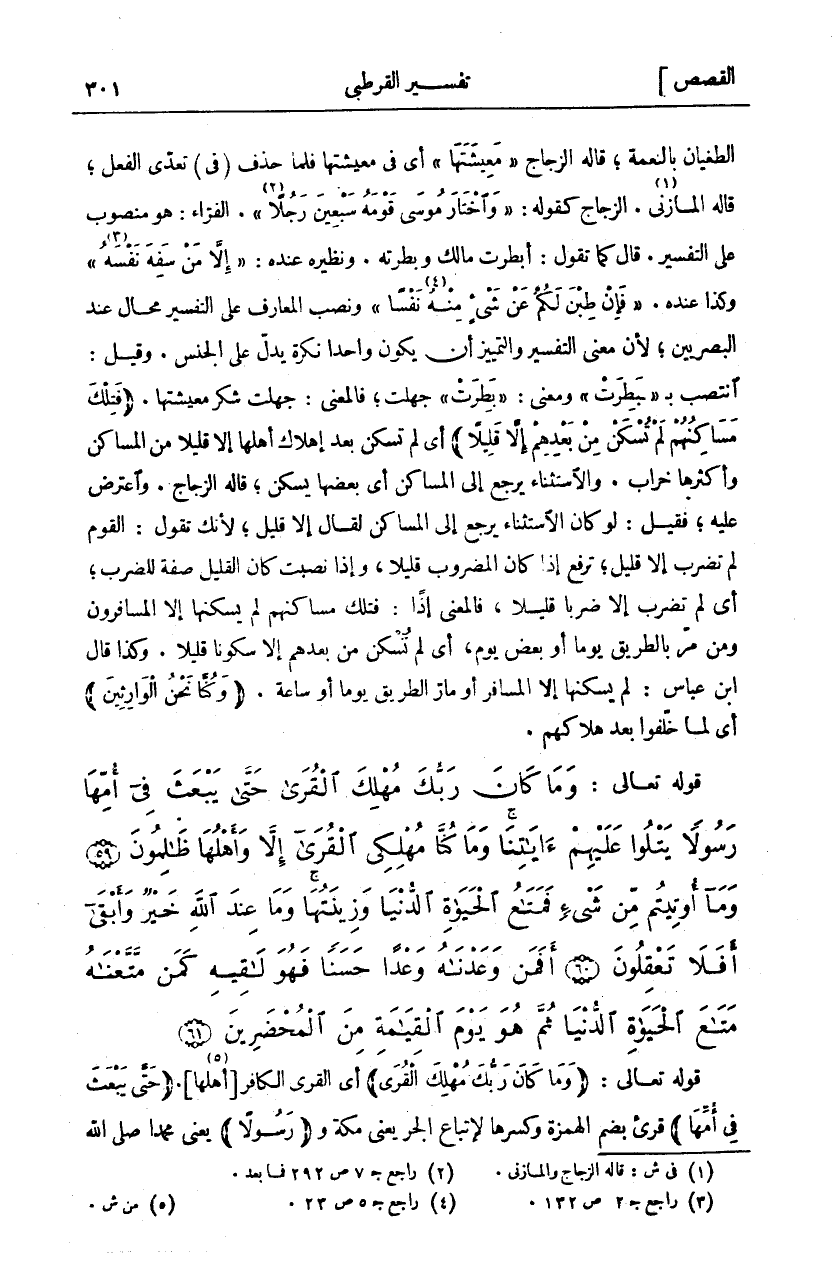 القصص ] تفسير القرطبى ٣٠١
الطغيان بالنعمة ؛ قاله الزجاج « مَعِيشَتَهَا » أى فى معيشتها فلما حذف (فى) تعدّى الفعل ؛
قاله المازنى (١) . الزجاج كقوله : « وَٱخْتَارَ مُوسَى قَوْمَهُ سَبْعِينَ رَجُلًا (٢) » . الفرّاء : هو منصوب
على التفسير . قال كما تقول : أبطرت مالك وبطرته . ونظيره عنده : « إِلَّا مَنْ سَفِهَ نَفْسَهُ (٣) »
وكذا عنده . « فَإِنْ طِبْنَ لَكُمْ عَنْ شَىْءٍ مِنْهُ نَفْسًا (٤) » ونصب المعارف على التفسير محال عند
البصريين ؛ لأن معنى التفسير والتمييز أن يكون واحدا نكرة يدلّ على الجنس . وقيل :
ٱنتصب بـ « بَطِرَتْ » ومعنى : « بَطِرَتْ » جهلت ؛ فالمعنى : جهلت شكر معيشتها . ﴿ فَتِلْكَ
مَسَاكِنُهُمْ لَمْ تُسْكَنْ مِنْ بَعْدِهِمْ إِلَّا قَلِيلًا ﴾ أى لم تسكن بعد إهلاك أهلها إلا قليلا من المساكن
وأكثرها خراب . والاستثناء يرجع إلى المساكن أى بعضها يسكن ؛ قاله الزجاج . وٱعترض
عليه ؛ فقيل : لو كان الاستثناء يرجع إلى المساكن لقال إلا قليل ؛ لأنك تقول : القوم
لم تضرب إلا قليل ؛ ترفع إذا كان المضروب قليلا ، وإذا نصبت كان القليل صفة للضرب ؛
أى لم تضرب إلا ضربا قليلا ، فالمعنى إذًا : فتلك مساكنهم لم يسكنها إلا المسافرون
ومن مرّ بالطريق يوما أو بعض يوم ، أى لم تُسْكن من بعدهم إلا سكونا قليلا . وكذا قال
ابن عباس : لم يسكنها إلا المسافر أو مارّ الطريق يوما أو ساعة . ﴿ وَكُنَّا نَحْنُ الْوَارِثِينَ ﴾
أى لما خلّفوا بعد هلاكهم .
قوله تعالى : وَمَا كَانَ رَبُّكَ مُهْلِكَ ٱلْقُرَىٰ حَتَّىٰ يَبْعَثَ فِىٓ أُمِّهَا
رَسُولًا يَتْلُوا عَلَيْهِمْ ءَايَٰتِنَا ۚ وَمَا كُنَّا مُهْلِكِى ٱلْقُرَىٰٓ إِلَّا وَأَهْلُهَا ظَٰلِمُونَ ٥٩
وَمَآ أُوتِيتُم مِّن شَىْءٍ فَمَتَٰعُ ٱلْحَيَوٰةِ ٱلدُّنْيَا وَزِينَتُهَا ۚ وَمَا عِندَ ٱللَّهِ خَيْرٌ وَأَبْقَىٰٓ
أَفَلَا تَعْقِلُونَ ٦٠ أَفَمَن وَعَدْنَٰهُ وَعْدًا حَسَنًا فَهُوَ لَٰقِيهِ كَمَن مَّتَّعْنَٰهُ
مَتَٰعَ ٱلْحَيَوٰةِ ٱلدُّنْيَا ثُمَّ هُوَ يَوْمَ ٱلْقِيَٰمَةِ مِنَ ٱلْمُحْضَرِينَ ٦١
قوله تعالى : ﴿ وَمَا كَانَ رَبُّكَ مُهْلِكَ الْقُرَى ﴾ أى القرى الكافر [أهلها] (٥) . ﴿ حَتَّى يَبْعَثَ
فِى أُمِّهَا ﴾ قرئ بضم الهمزة وكسرها لإتباع الجر يعنى مكة و ﴿ رَسُولًا ﴾ يعنى محمدا صلى الله
(١) فى ش : قاله الزجاج والمازنى . (٢) راجع جـ ٧ ص ٢٩٢ فما بعد .
(٣) راجع جـ ٢ ص ١٣٢ . (٤) راجع جـ ٥ ص ٢٣ . (٥) من ش .